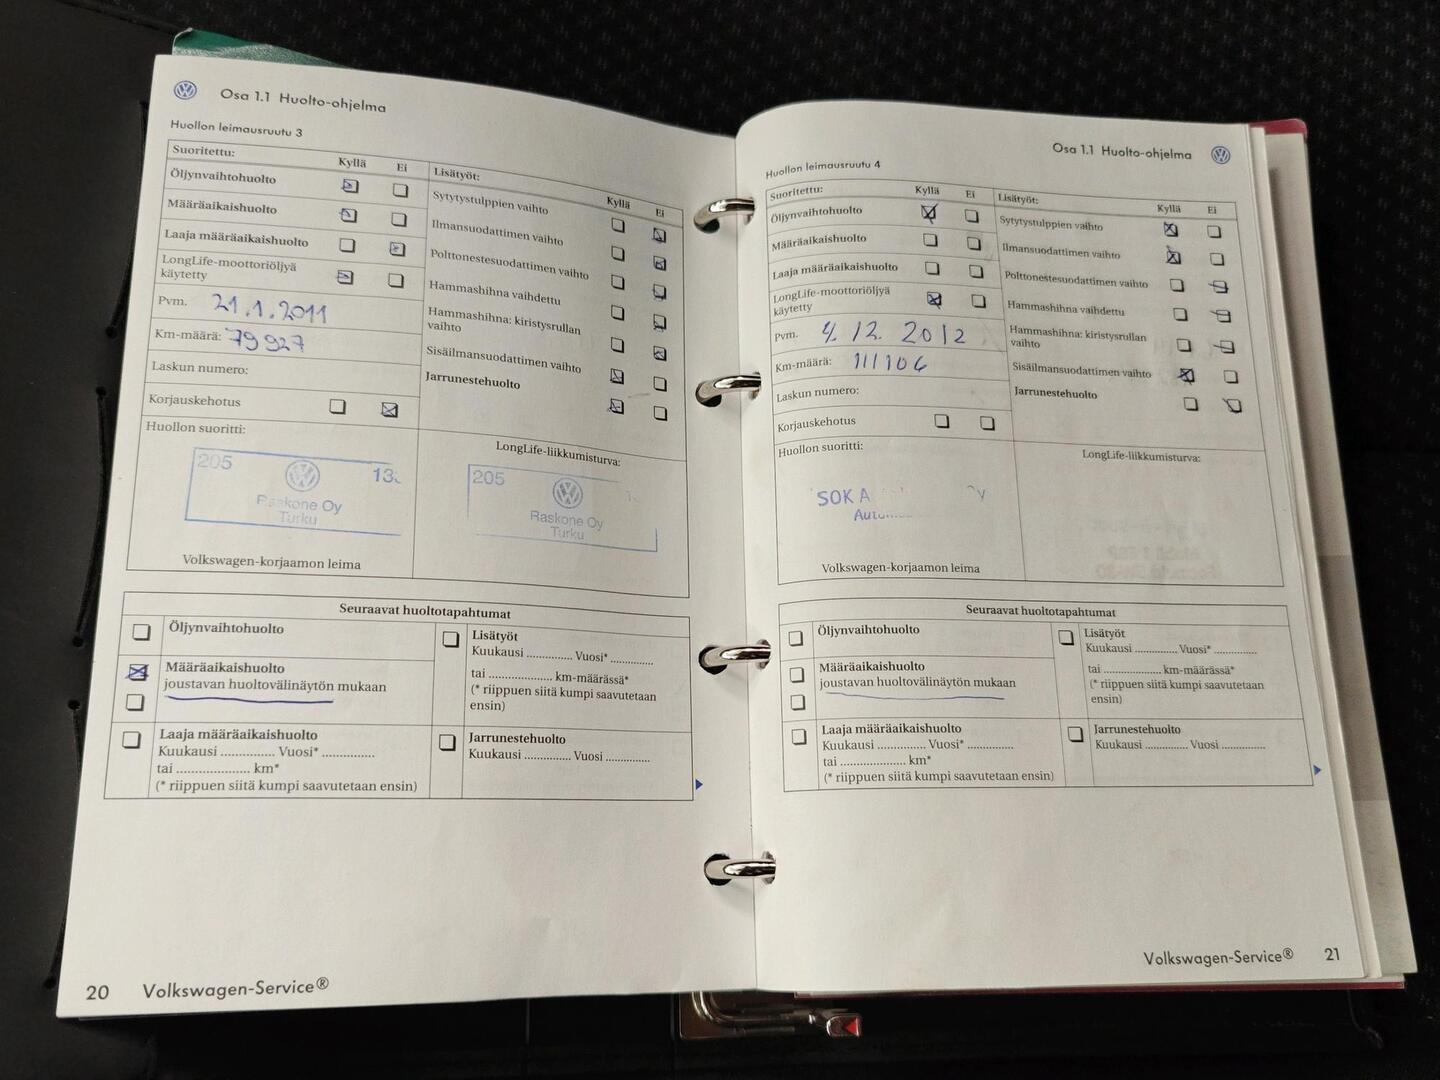 Osa 1.1 Huolto-ohjelma
Huollon leimausruutu 3
Suoritettu:
Kyllä
Ei
Öljynvaihtohuolto
Määräaikaishuolto
Laaja määräaikaishuolto
LongLife-moottoriöljyä
käytetty
Pvm. 21.1.2011
Km-määrä: 79927
Laskun numero:
Korjauskehotus
Lisätyöt:
Kyllä
Ei
Sytytystulppien vaihto
Ilmansuodattimen vaihto
Polttonestesuodattimen vaihto
Hammashihna vaihdettu
Hammashihna: kiristysrullan
vaihto
Sisäilmansuodattimen vaihto
Jarrunestehuolto
Huollon suoritti:
205
Raskone Oy
Turku
Volkswagen-korjaamon leima
LongLife-liikkumisturva:
205
Raskone Oy
Turku
Seuraavat huoltotapahtumat
Öljynvaihtohuolto
Määräaikaishuolto
joustavan huoltovälinäytön mukaan
Laaja määräaikaishuolto
Kuukausi ............... Vuosi* ...............
tai ..................... km*
(* riippuen siitä kumpi saavutetaan ensin)
Lisätyöt
Kuukausi ............. Vuosi* ............
tai .................. km-määrässä*
(* riippuen siitä kumpi saavutetaan
ensin)
Jarrunestehuolto
Kuukausi ............. Vuosi .............
20 Volkswagen-Service®
Osa 1.1 Huolto-ohjelma
Huollon leimausruutu 4
Suoritettu:
Kyllä
Ei
Öljynvaihtohuolto
Määräaikaishuolto
Laaja määräaikaishuolto
LongLife-moottoriöljyä
käytetty
Pvm. 4.12.2012
Km-määrä: 111106
Laskun numero:
Korjauskehotus
Lisätyöt:
Kyllä
Ei
Sytytystulppien vaihto
Ilmansuodattimen vaihto
Polttonestesuodattimen vaihto
Hammashihna vaihdettu
Hammashihna: kiristysrullan
vaihto
Sisäilmansuodattimen vaihto
Jarrunestehuolto
Huollon suoritti:
SOK
Volkswagen-korjaamon leima
LongLife-liikkumisturva:
Seuraavat huoltotapahtumat
Öljynvaihtohuolto
Määräaikaishuolto
joustavan huoltovälinäytön mukaan
Laaja määräaikaishuolto
Kuukausi ............. Vuosi* .............
tai ................... km*
(* riippuen siitä kumpi saavutetaan ensin)
Lisätyöt
Kuukausi ............. Vuosi* .............
tai .................. km-määrässä*
(* riippuen siitä kumpi saavutetaan
ensin)
Jarrunestehuolto
Kuukausi ............. Vuosi .............
Volkswagen-Service® 21